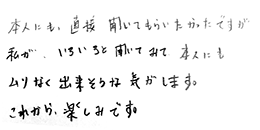 本人にも、直接 聞いてもらいたかったですが
私が、いろいろと聞いてみて 本人にも
ムリなく出来そうな気がします。
これから、楽しみです。